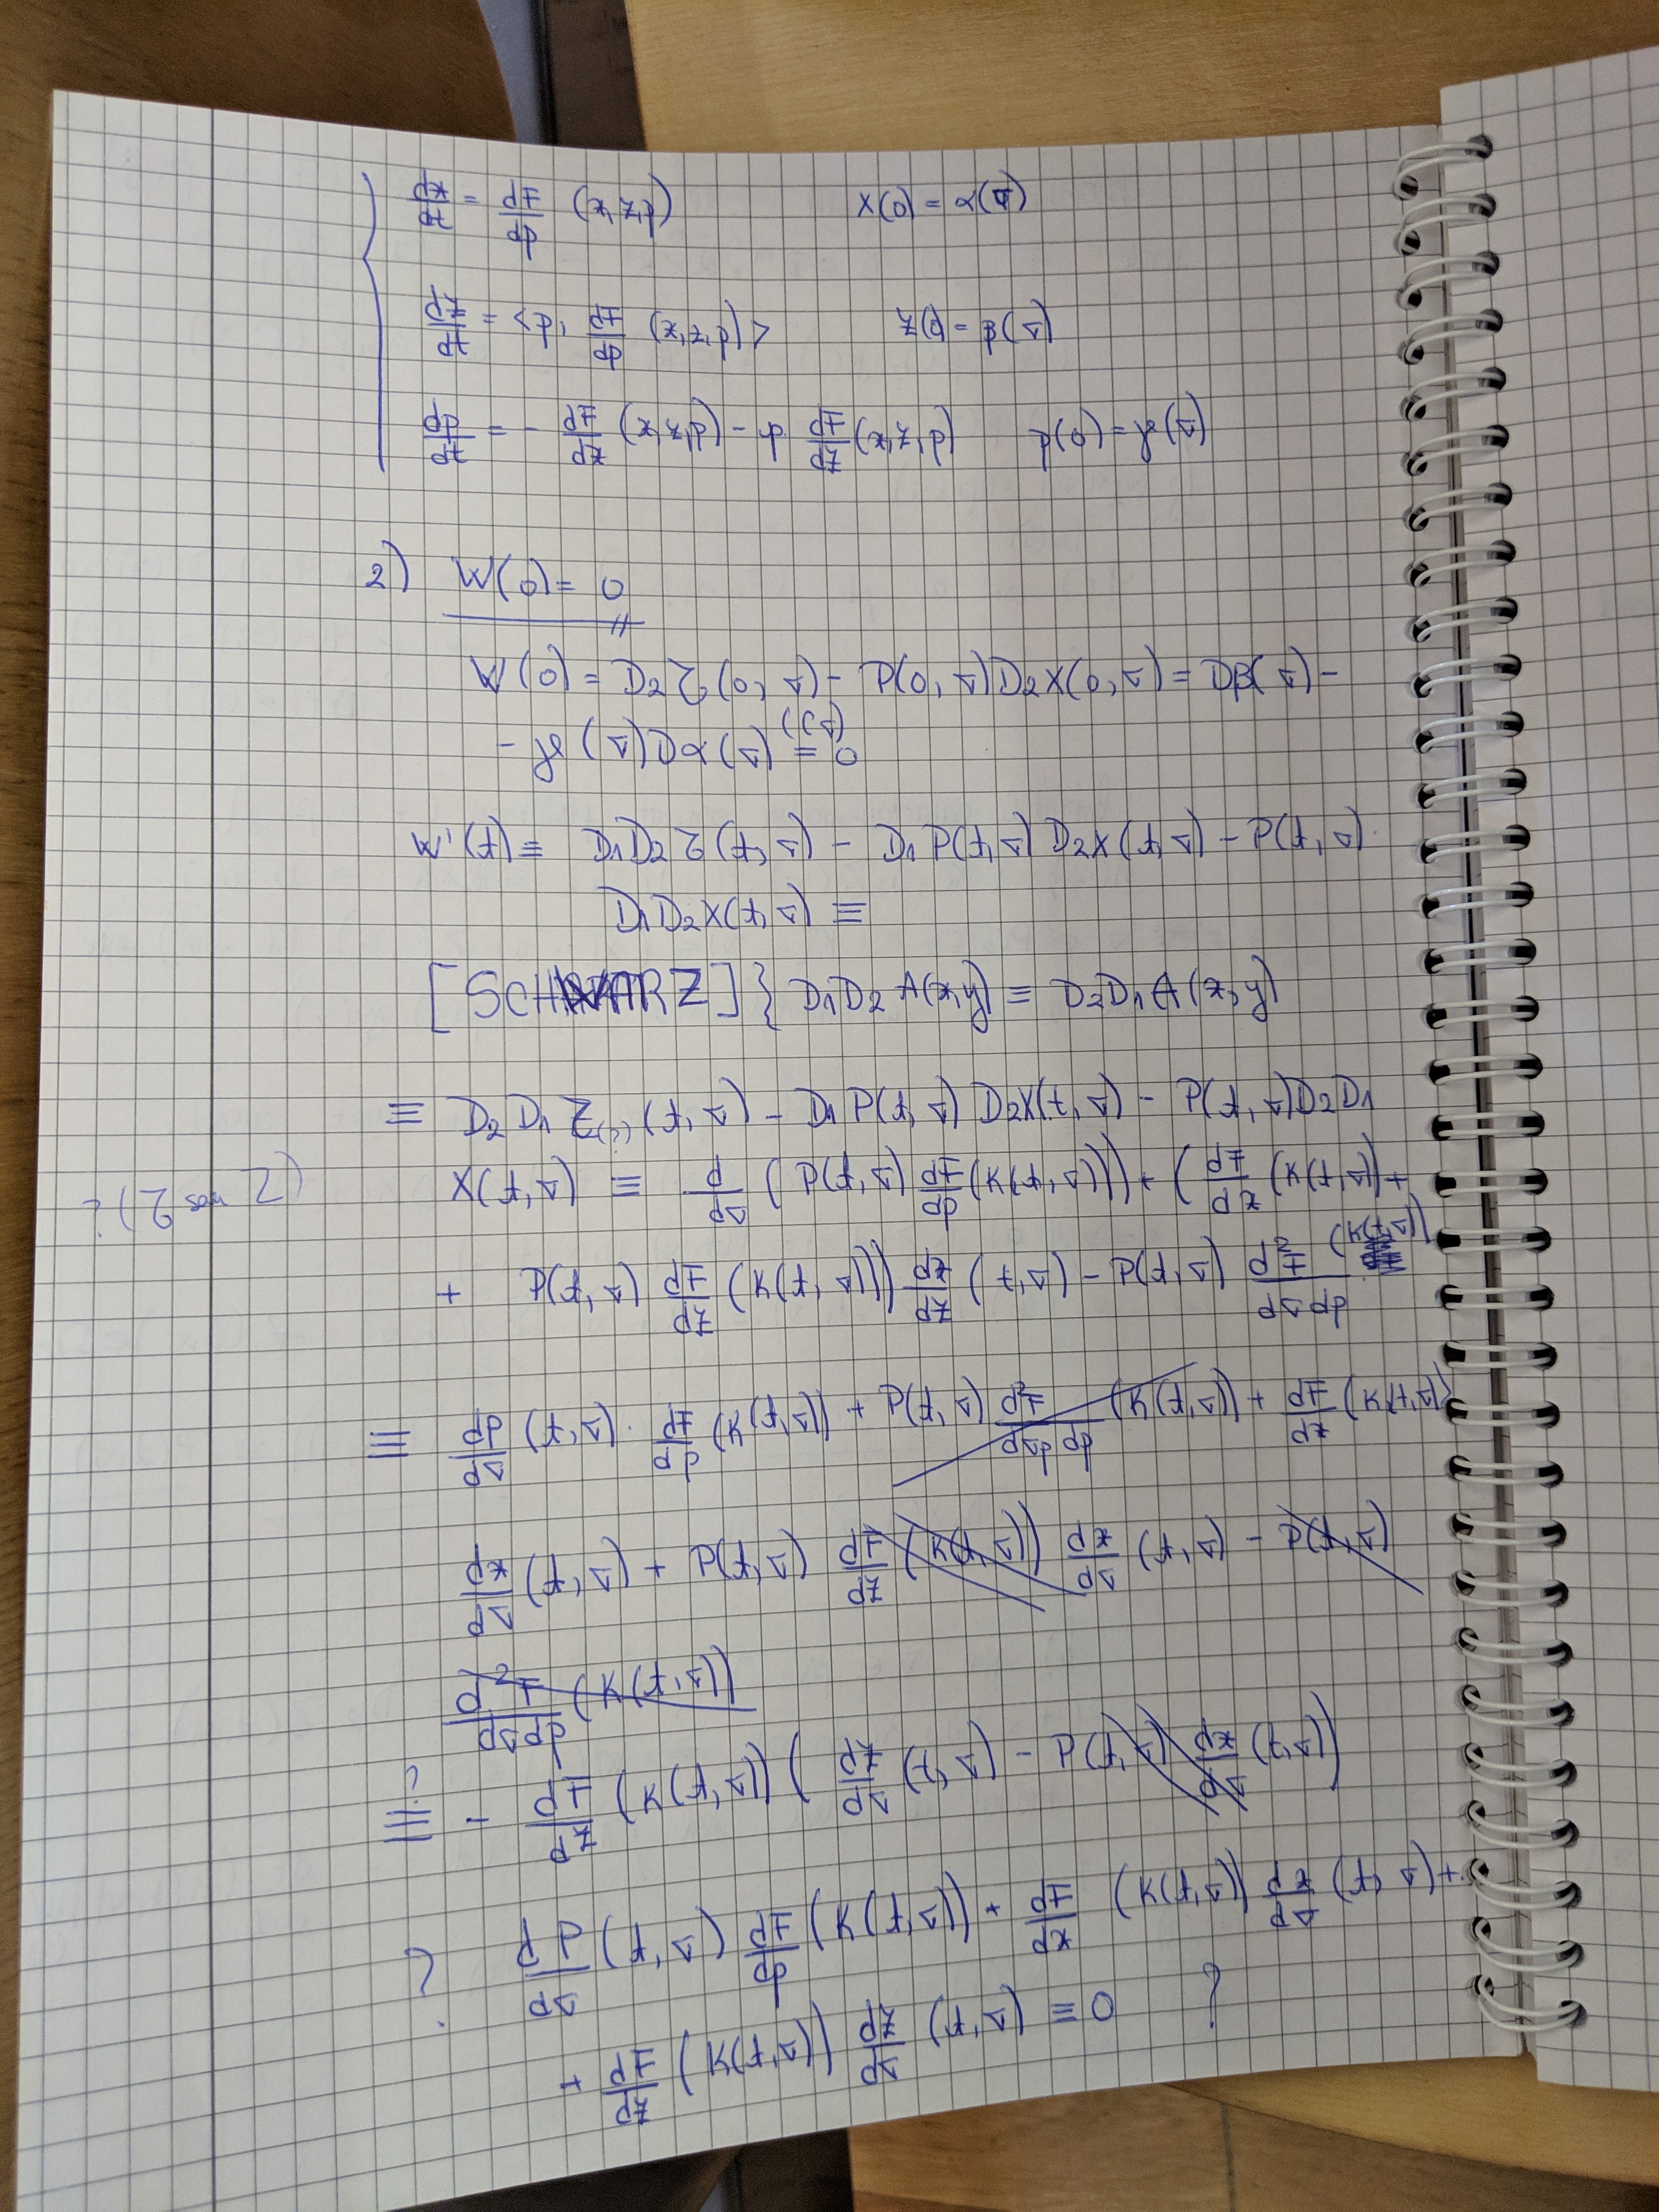 dx/dt = dF/dp (x,z,p) x(0) = α(v)
dz/dt = <p, dF/dp (x,z,p)> z(0) = β(v)
dp/dt = - dF/dx (x,z,p) - p dF/dz (x,z,p) p(0) = γ(v)
2) W(0) = 0
W(0) = D₂Z(0,v) - P(0,v)D₂X(0,v) = Dβ(v) -
- γ(v)Dα(v) (CV)= 0
W'(t) ≡ D₁D₂Z(t,v) - D₁P(t,v) D₂X(t,v) - P(t,v)·
D₁D₂X(t,v) ≡
[SCHWARZ] } D₁D₂A(x,y) ≡ D₂D₁A(x,y)
≡ D₂D₁Z(?)(t,v) - D₁P(t,v) D₂X(t,v) - P(t,v)D₂D₁
X(t,v) ≡ d/dv (P(t,v) dF/dp (K(t,v))) + (dF/dx (K(t,v)) +
+ P(t,v) dF/dz (K(t,v))) dx/dz (t,v) - P(t,v) d²F/dvdp (K(t,v))
≡ dP/dv (t,v) · dF/dp (K(t,v)) + P(t,v) d²F/dvp dp (K(t,v)) + dF/dx (K(t,v))
dx/dv (t,v) + P(t,v) dF/dz (K(t,v)) dx/dv (t,v) - P(t,v)
d²F/dvdp (K(t,v))
?≡ - dF/dz (K(t,v)) (dz/dv (t,v) - P(t,v) dx/dv (t,v))
? dP/dv (t,v) dF/dp (K(t,v)) + dF/dx (K(t,v)) dx/dv (t,v) +
+ dF/dz (K(t,v)) dz/dv (t,v) ≡ 0 ?